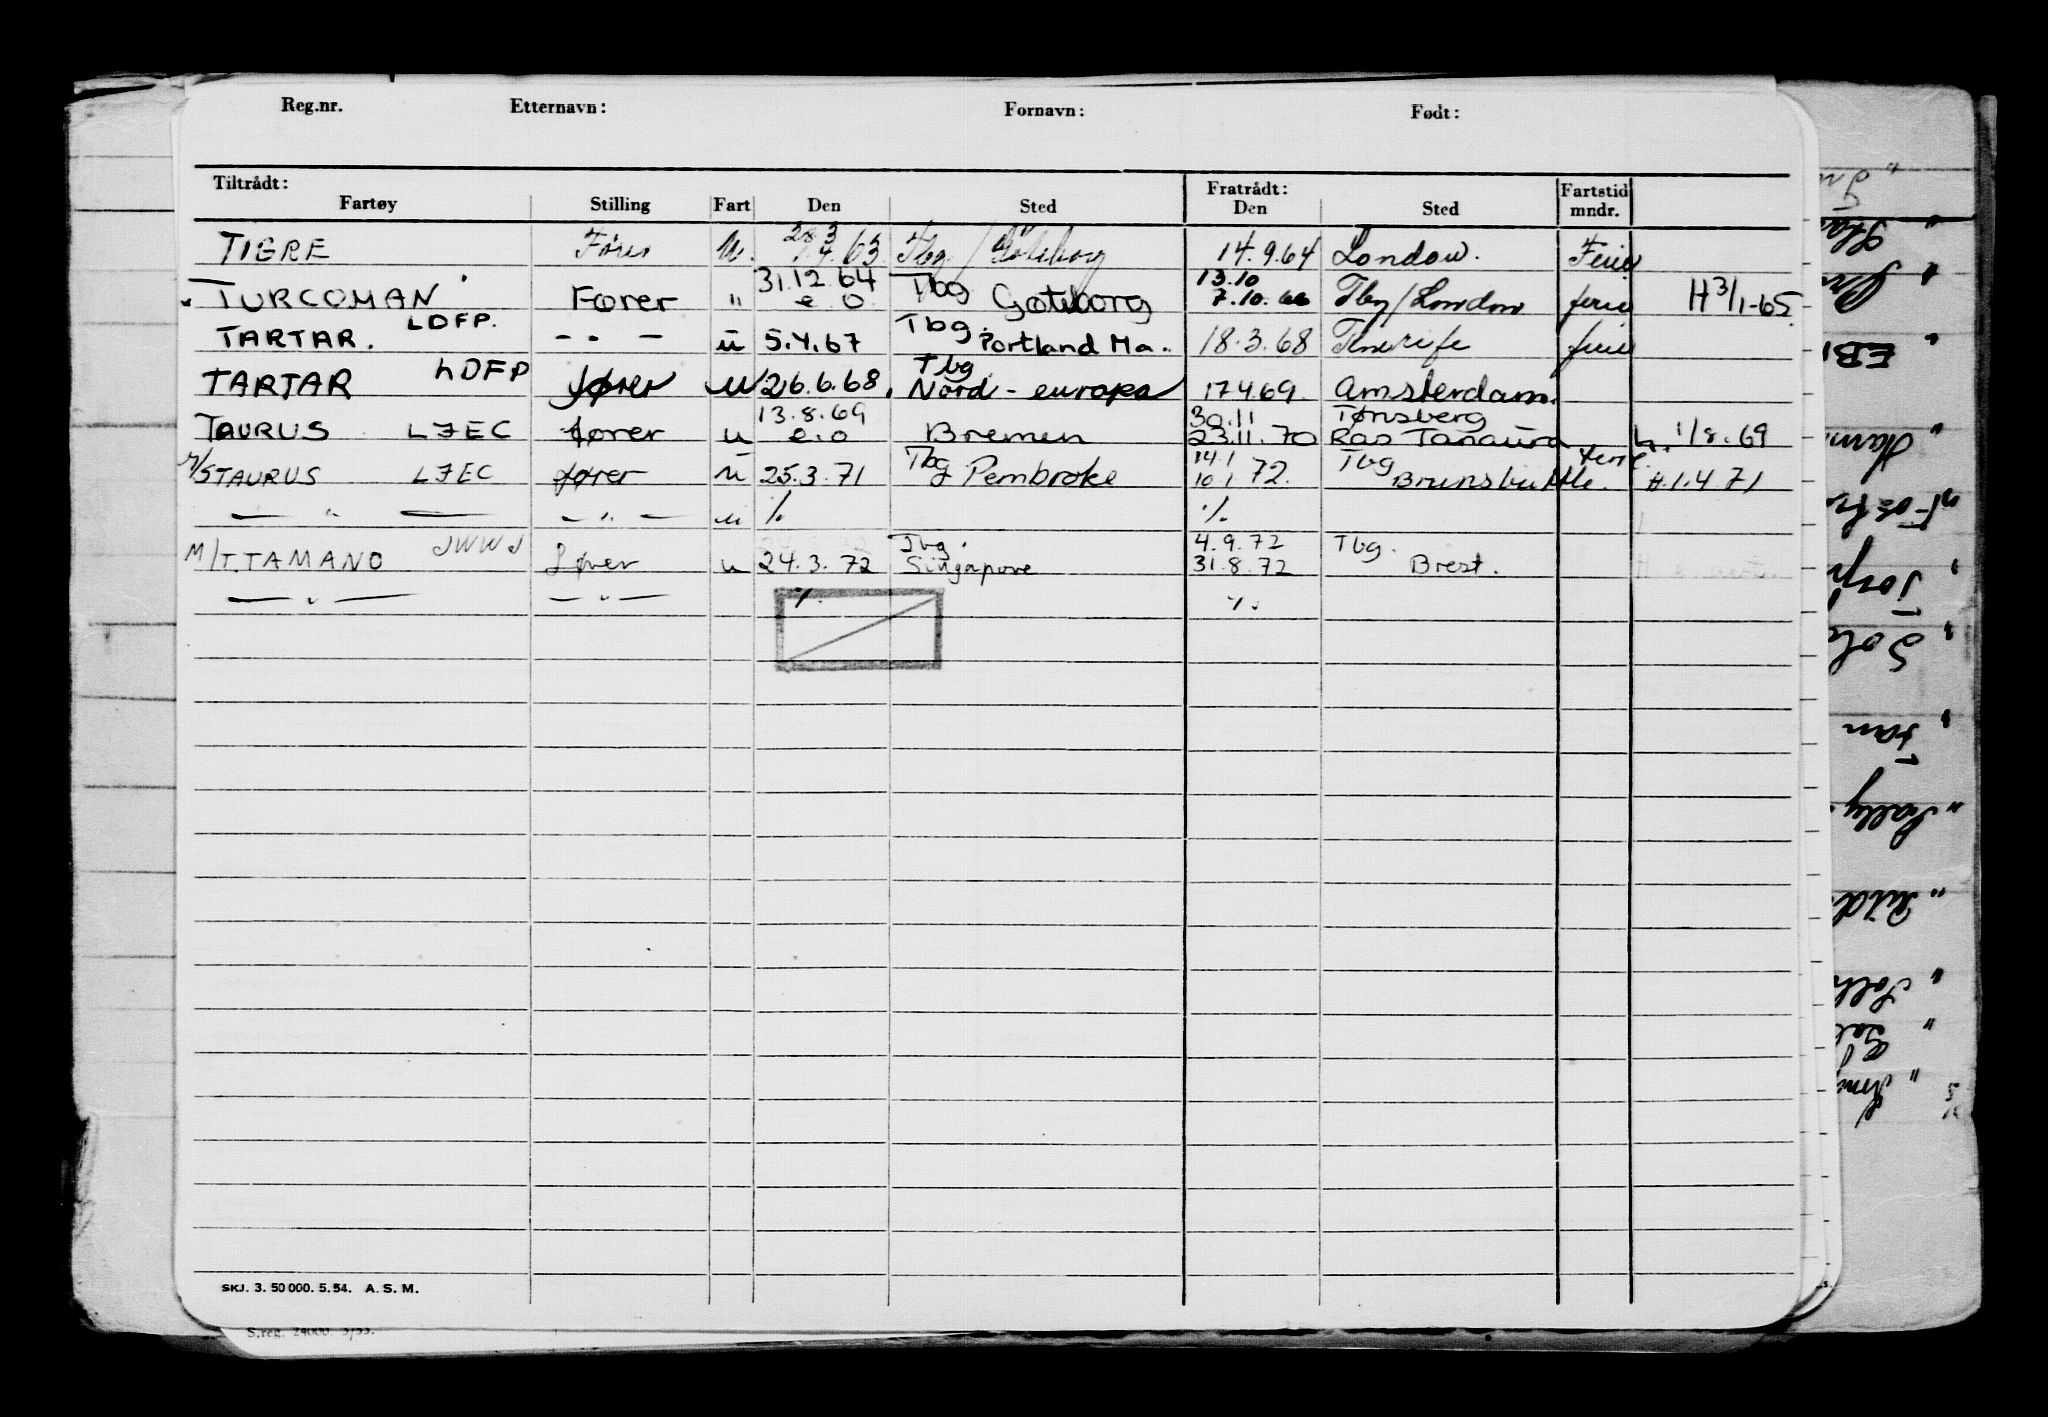 Reg.nr. Etternavn: Fornavn: Født:
Tiltrådt: Fratrådt: Fartstid
Fartøy Stilling Fart Den Sted Den Sted mndr.
28.3
TIGRE Fører U. 1.4.63 Tbg/Göteborg 14.9.64 London. Ferie
31.12.64 Tbg 13.10
TURCOMAN Fører " e.o. Gøteborg 7.10.66 Tbg/London ferie H 3/1-65
Tbg.
TARTAR. LDFP. - " - u 5.4.67 Portland Ma. 18.3.68 Tenerife ferie
Tbg.
TARTAR LDFP fører u 26.6.68. Nord-europa 17.4.69. Amsterdam.
13.8.69 30.11 Tønsberg
TAURUS LJEC fører u e.o Bremen 23.11.70 Ras Tanaura ferie. h. 1/8.69
Tbg 14.1 Tbg
M/S TAURUS LJEC fører u 25.3.71 Pembroke 10.1 72. Brunsbuttle. H.1.4 71
— " — — " — u ٪ ٪
Tbg. 4.9.72 Tbg.
M/T. TAMANO JWWJ fører u 24.3.72 Singapore 31.8.72 Brest.
— " — — " — ٪ ٪
SKJ. 3. 50 000. 5. 54. A. S. M.
S.reg. 24000 3/53.